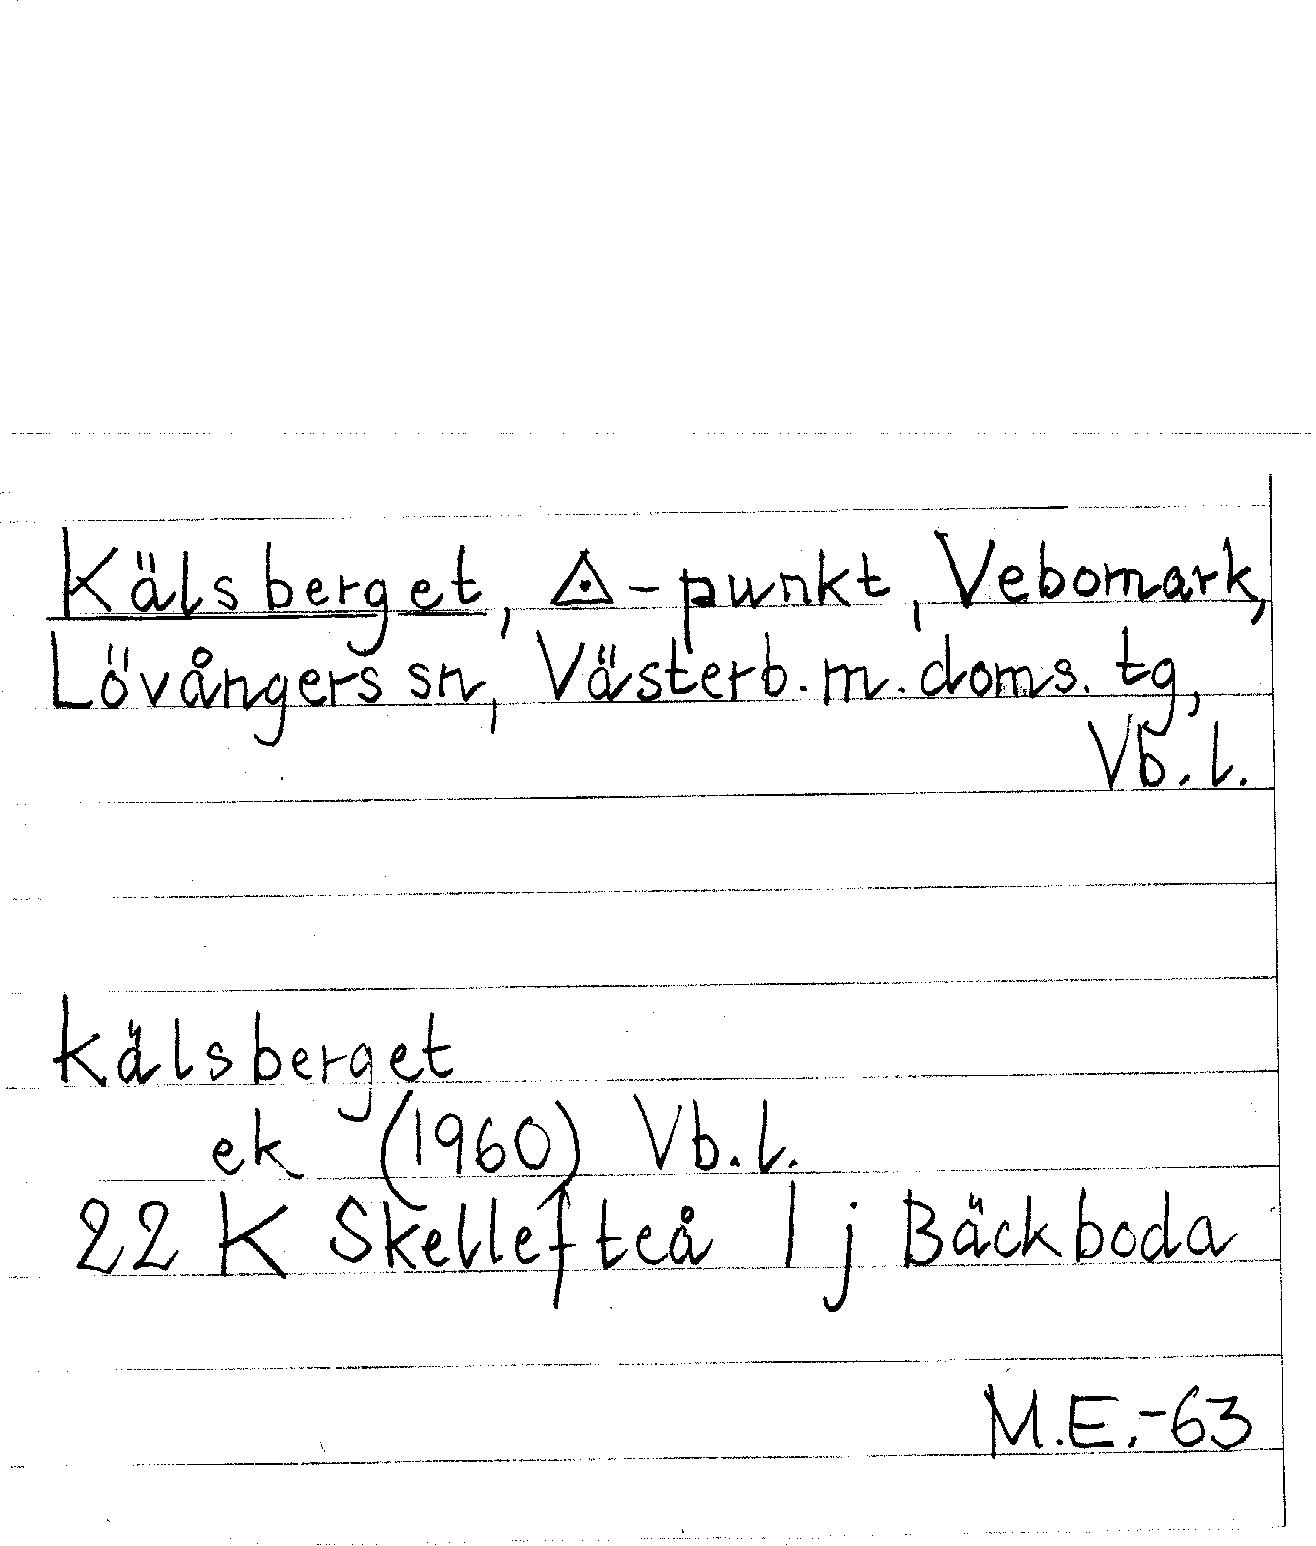 Kälsberget, ◬-punkt, Vebomark,
Lövångers sn, Västerb. m. doms. tg,
Vb. l.
Kälsberget
ek (1960) Vb. l.
22 K Skellefteå 1 j Bäckboda
M.E.-63